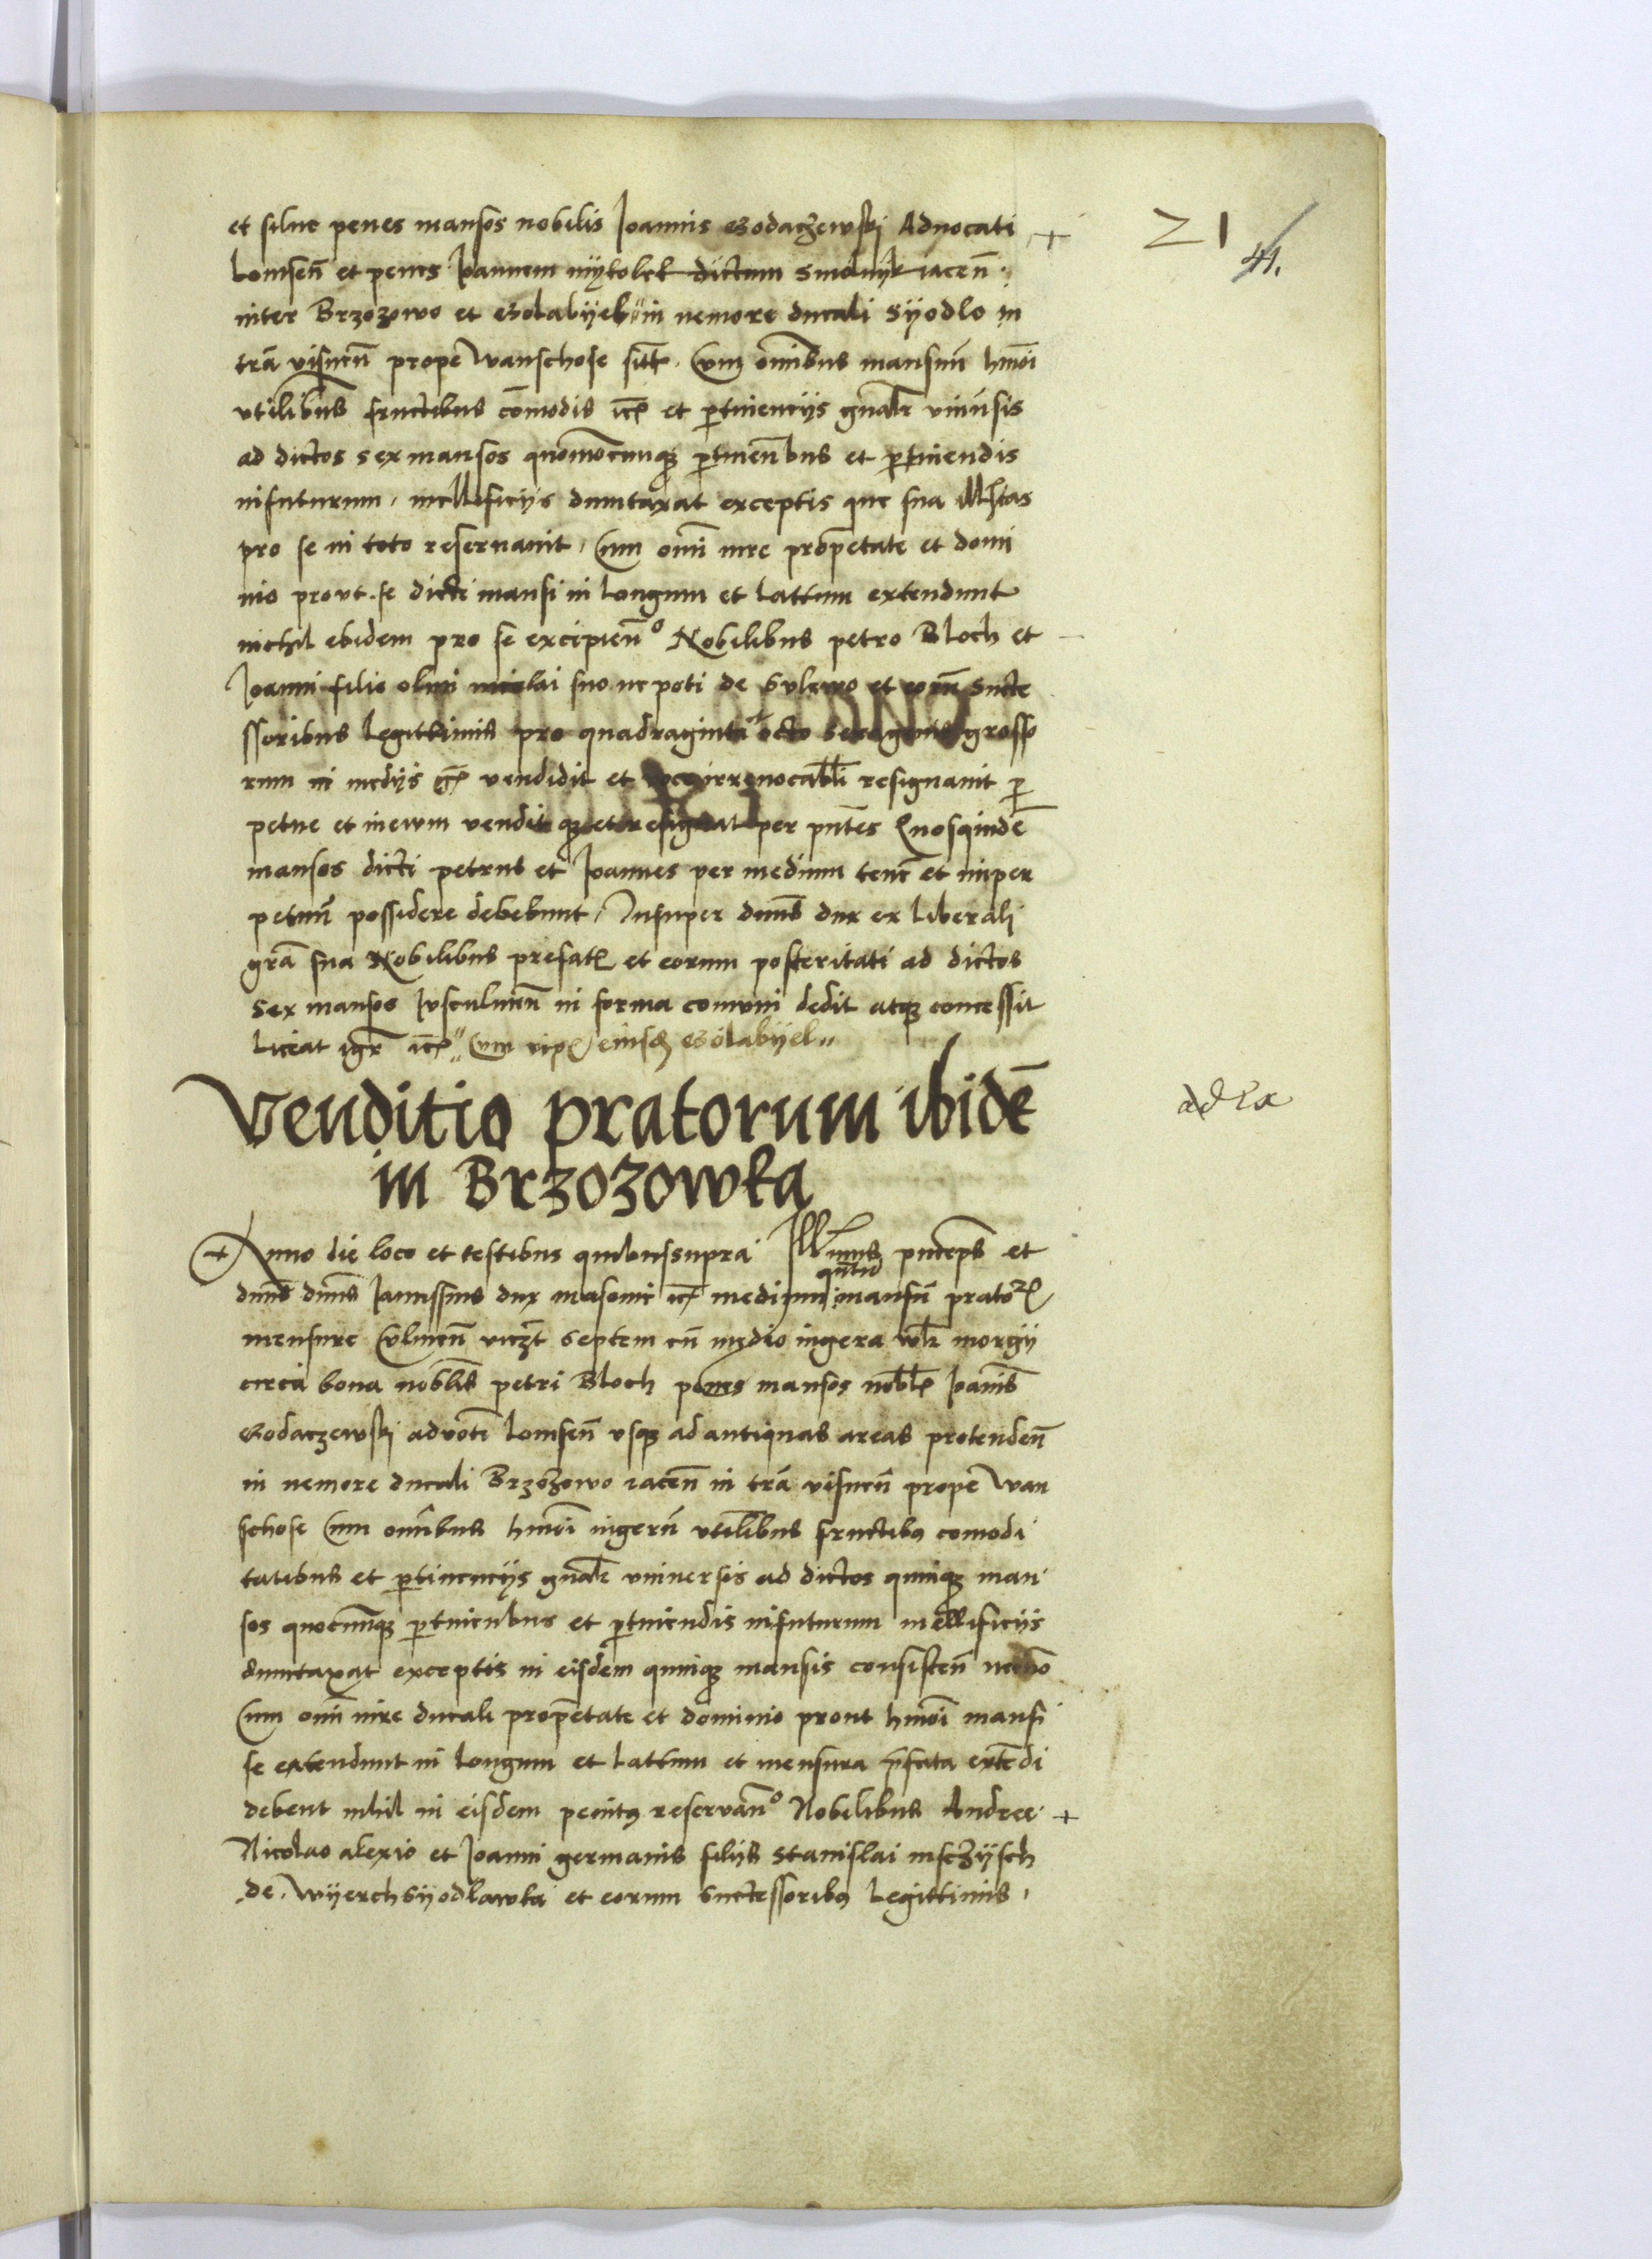 et silue penes mansos nobilis Joannis Godaczewski Aduocati +
Lomsen̄ et penes Joannem mytolek dictum smolnyk iacen̄
inter Brzozowo et Golabyek in nemore ducali Syodlo in
tr̄a visnen̄ prope Wanschose sitt. Cum omībus mansuū hm̄oi
vtilibus fructibus cōmodis etc et ꝑtinencijs gn̄alr vniūsis
ad dictos sex mansos quomōcunqꝫ ꝑtinen̄bus et ꝑtinendis
infuturum, mellificijs dumtaxat exceptis que sua Ill
pro se in toto reseruauit, Cum om̄i iure proprietate et domi
nio provt se dicti mansi in longum et lattum extendunt
nichil ebidem pro se excipien̄° Nobilibus petro Bloch et
Joanni filio olim nicolai suo nepoti de Gulewo et eorū Succe
ssoribus Legittimis pro quadraginta octo sexagenis grosso
rum in medijs etc vendidit et irreuocabli resignauit ꝑ
petue et ineuum vendit qꝫ et resignat per pn̄tes Quosquidē
mansos dicti petrus et Joannes per medium tenē et inper
petuū possidere debebunt, Insuper dn̄us dux ex liberali
gr̄a sua Nobilibus prefatꝭ et eorum posteritati ad dictos
sex mansos Jusculmen̄ in forma comuni dedit atqꝫ concessit
Liceat igr̄ etc Cum Golabyel
Venditio pratorum ibidē
in Brzozowka
Anno die loco et testibus quibussupra Illmus princeps et
quītū
dn̄us dn̄us Janussius dux masouie etc medium mansū pratoꝝ
mensure Culmen̄ viczt septem cū medio iugera vlr morgy
circa bona nobilis petri Bloch penes mansos noblꝭ Joanis
Godaczewski advoti Lomsen̄ vsqꝫ ad antiquas areas protenden̄
in nemore ducali Brzozowo iacen̄ in tr̄a visnen̄ prope Wan
schose Cum omībus hm̄oi iugerū vtilibus fructibꝫ comodi
tatibus et ꝑtinencijs gn̄alr vniuersis ad dictos quinqꝫ man
sos quocunqꝫ ꝑtinenbus et ꝑtinendis infuturum mellificijs
dumtaxat exceptis in eisdem quinqꝫ mansis consisten̄ necnō
Cum om̄i iure ducali proprietate et dominio prout hm̄oi mansi
se extendunt in longum et lattum et mensura p̄fata extēdi
debent nihil in eisdem penitꝫ reservan̄° Nobilibus Andree +
Nicolao alexio et Joanni germanis filijs Stanislai msczysch
de Wyerch Syodlawka et eorum Successoribꝫ Legittimis,
21
41.